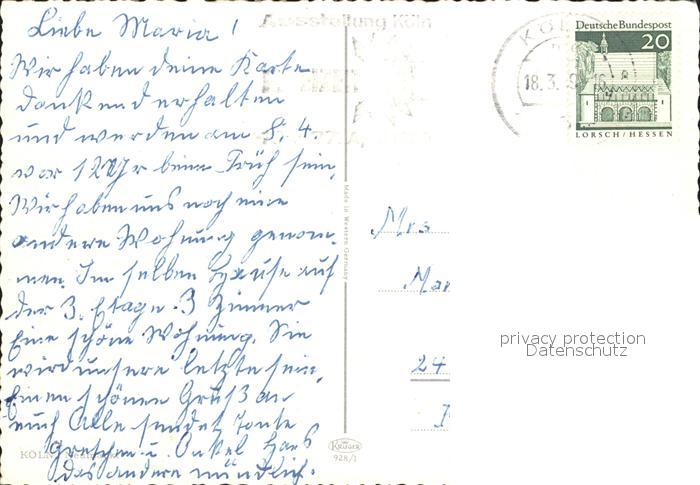 Liebe Maria!
Wir haben deine Karte
dankend erhalten
und werden am 8. 4.
vor 12 Uhr beim Früh sein,
Wir haben uns noch eine
andere Wohnung genom-
men. Im selben Hause auf
der 3. Etage. 3 Zimmer
Eine schöne Wohnung. Sie
wird unsere letzte sein,
Einen schönen Gruß an
euch Alle sendet Tante
Gretchen u. Onkel Hans
das andere mündlich.
KÖLN
Ausstellung Köln
KÖLN
18.3.
Deutsche Bundespost
20
LORSCH / HESSEN
Made in Western Germany
KRÜGER
928/1
Mrs
Mar
24
privacy protection
Datenschutz